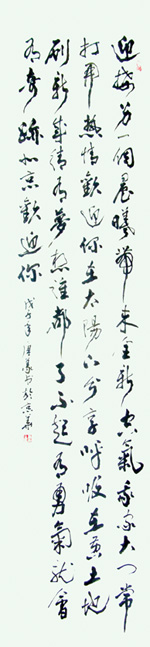 迎接另一個晨曦帶來全新空氣我家大门常
打开熱情歡迎你在太陽下分享呼吸在黃土地
刷新成績有夢想誰都了不起有勇氣就會
有奇跡北京歡迎你
戊子年 书於京華